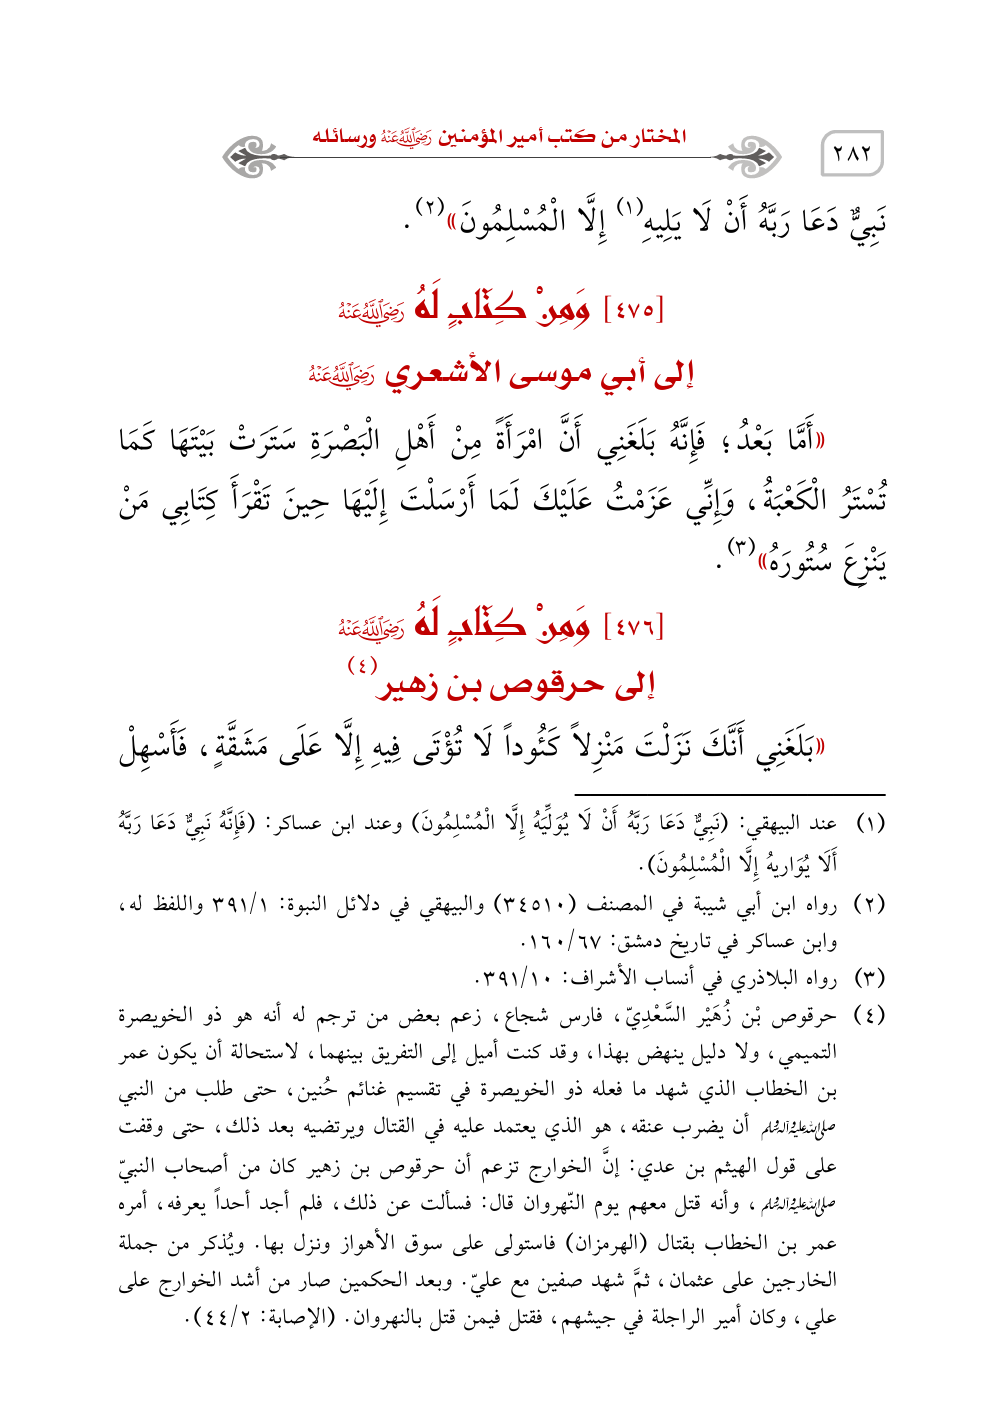 المختار من كتب أمير المؤمنين رَضِيَ اللَّهُ عَنْهُ ورسائله
٢٨٢
نَبِيٌّ دَعَا رَبَّهُ أَنْ لَا يَلِيهِ(١) إِلَّا الْمُسْلِمُونَ»(٢).
[٤٧٥] وَمِنْ كِتَابٍ لَهُ رَضِيَ اللَّهُ عَنْهُ
إلى أبي موسى الأشعري رَضِيَ اللَّهُ عَنْهُ
«أَمَّا بَعْدُ؛ فَإِنَّهُ بَلَغَنِي أَنَّ امْرَأَةً مِنْ أَهْلِ الْبَصْرَةِ سَتَرَتْ بَيْتَهَا كَمَا
تُسْتَرُ الْكَعْبَةُ، وَإِنِّي عَزَمْتُ عَلَيْكَ لَمَا أَرْسَلْتَ إِلَيْهَا حِينَ تَقْرَأُ كِتَابِي مَنْ
يَنْزِعَ سُتُورَهُ»(٣).
[٤٧٦] وَمِنْ كِتَابٍ لَهُ رَضِيَ اللَّهُ عَنْهُ
إلى حرقوص بن زهير(٤)
«بَلَغَنِي أَنَّكَ نَزَلْتَ مَنْزِلاً كَئُوداً لَا تُؤْتَى فِيهِ إِلَّا عَلَى مَشَقَّةٍ، فَأَسْهِلْ
(١) عند البيهقي: (نَبِيٌّ دَعَا رَبَّهُ أَنْ لَا يُوَلِّيَهُ إِلَّا الْمُسْلِمُونَ) وعند ابن عساكر: (فَإِنَّهُ نَبِيٌّ دَعَا رَبَّهُ
أَلَا يُوَاريهُ إِلَّا الْمُسْلِمُونَ).
(٢) رواه ابن أبي شيبة في المصنف (٣٤٥١٠) والبيهقي في دلائل النبوة: ٣٩١/١ واللفظ له،
وابن عساكر في تاريخ دمشق: ١٦٠/٦٧.
(٣) رواه البلاذري في أنساب الأشراف: ٣٩١/١٠.
(٤) حرقوص بْن زُهَيْر السَّعْدِيّ، فارس شجاع، زعم بعض من ترجم له أنه هو ذو الخويصرة
التميمي، ولا دليل ينهض بهذا، وقد كنت أميل إلى التفريق بينهما، لاستحالة أن يكون عمر
بن الخطاب الذي شهد ما فعله ذو الخويصرة في تقسيم غنائم حُنين، حتى طلب من النبي
صلى الله عليه وآله وسلم أن يضرب عنقه، هو الذي يعتمد عليه في القتال ويرتضيه بعد ذلك، حتى وقفت
على قول الهيثم بن عدي: إنَّ الخوارج تزعم أن حرقوص بن زهير كان من أصحاب النبيّ
صلى الله عليه وآله وسلم، وأنه قتل معهم يوم النّهروان قال: فسألت عن ذلك، فلم أجد أحداً يعرفه، أمره
عمر بن الخطاب بقتال (الهرمزان) فاستولى على سوق الأهواز ونزل بها. ويُذكر من جملة
الخارجين على عثمان، ثمَّ شهد صفين مع عليّ. وبعد الحكمين صار من أشد الخوارج على
علي، وكان أمير الراجلة في جيشهم، فقتل فيمن قتل بالنهروان. (الإصابة: ٤٤/٢).